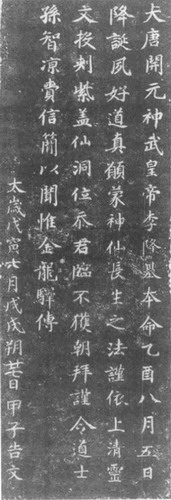 大唐開元神武皇帝李隆基本命乙酉八月五日
降誕夙好道真願蒙神仙長生之法謹依上清靈
文投刾紫盖仙洞位忝君臨不獲朝拜謹令道士
孫智凉賷信簡以聞惟金龍驛傳
太歲戊寅六月戊戌朔廿七日甲子告文